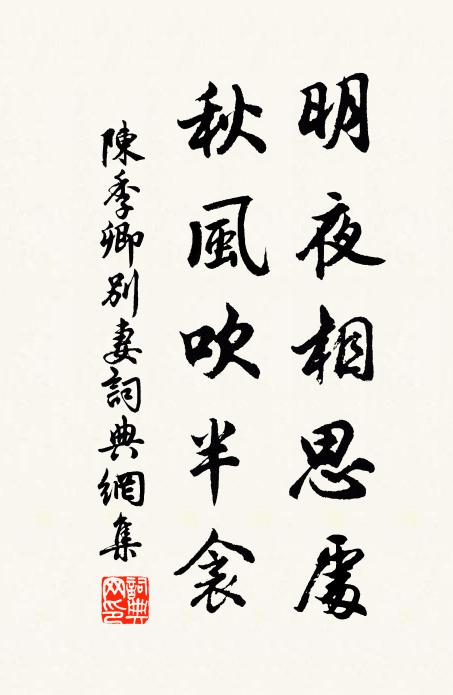 明夜相思處
秋風吹半衾
陳季卿別妻詞典網集
詞典網印